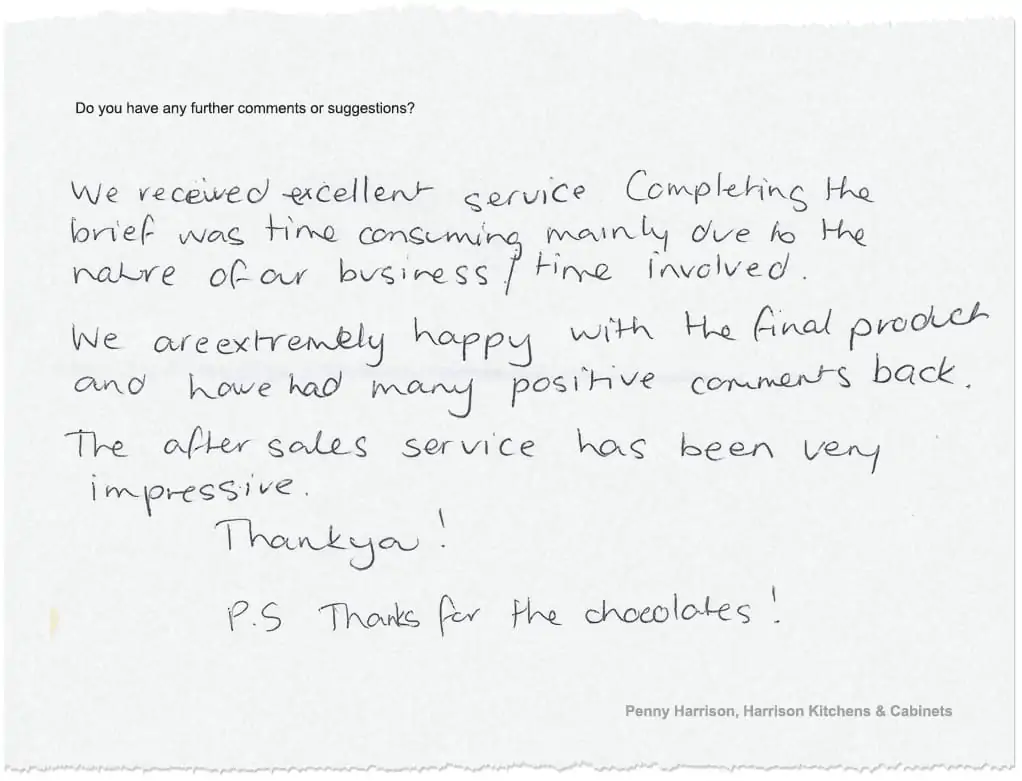 Do you have any further comments or suggestions?
We received excellent service Completing the
brief was time consuming mainly due to the
nature of our business / time involved.
We are extremely happy with the final product
and have had many positive comments back.
The after sales service has been very
impressive.
Thankyou!
P.S Thanks for the chocolates!
Penny Harrison, Harrison Kitchens & Cabinets